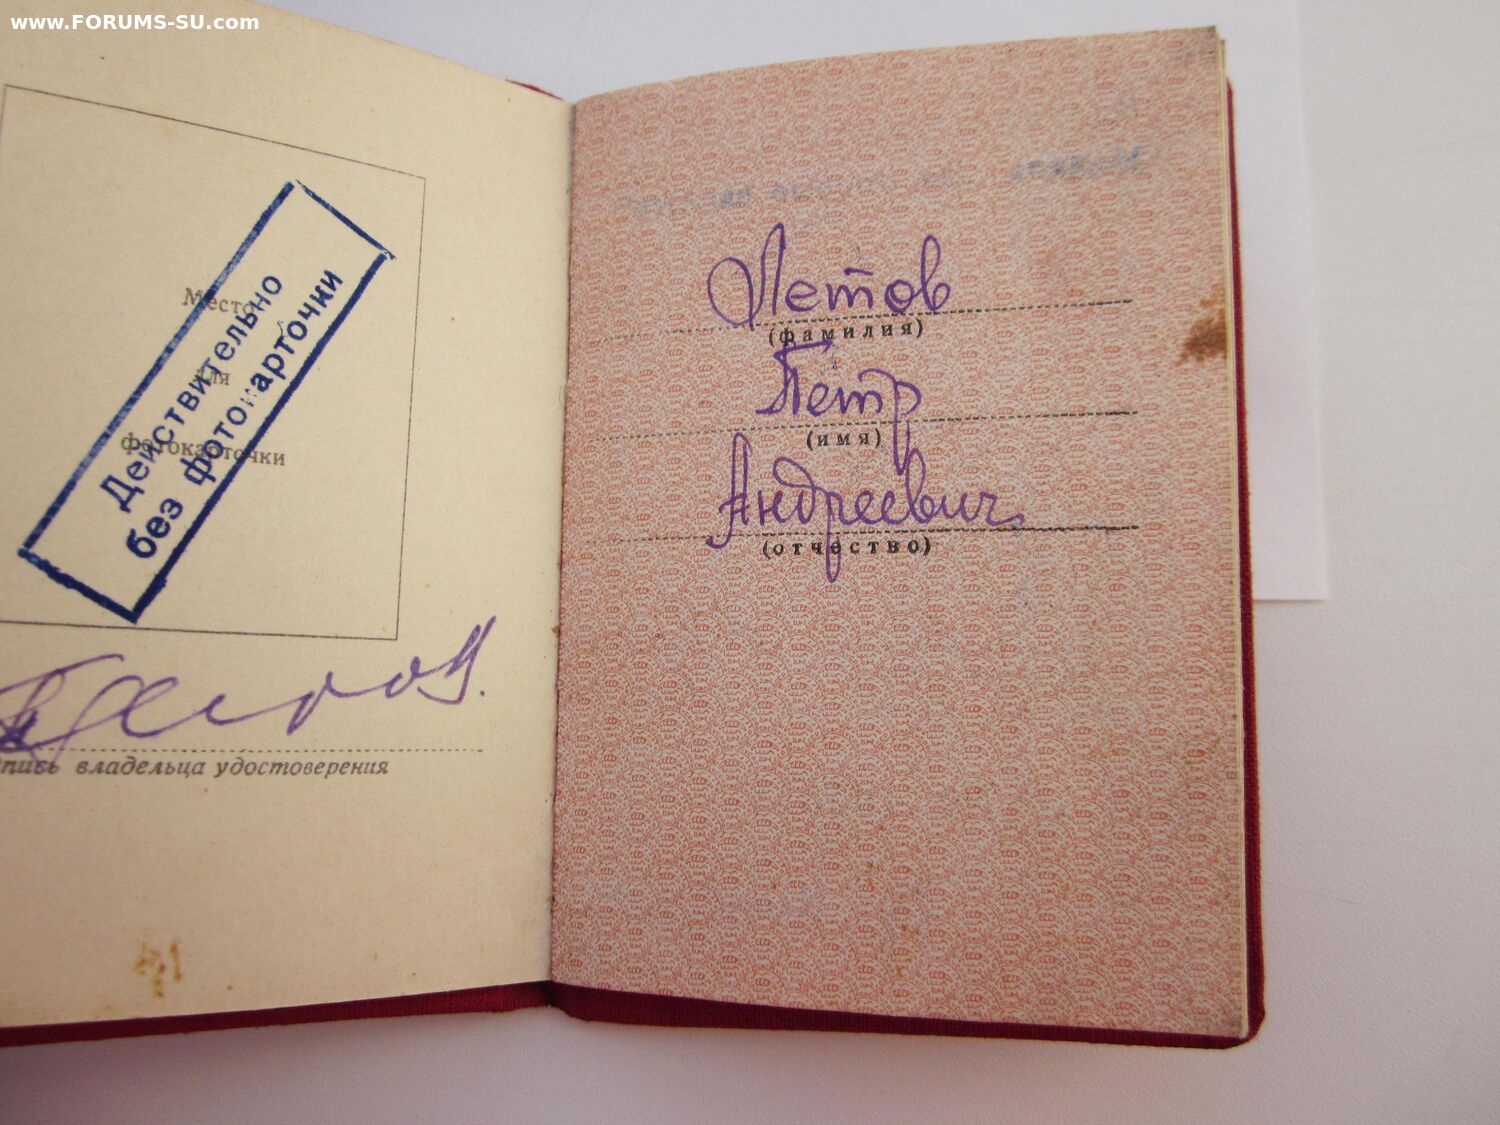 www.FORUMS-SU.com
Место
для
фотокарточки
Действительно
без фотокарточки
пись владельца удостоверения
Летов
(фамилия)
Петр
(имя)
Андреевич
(отчество)